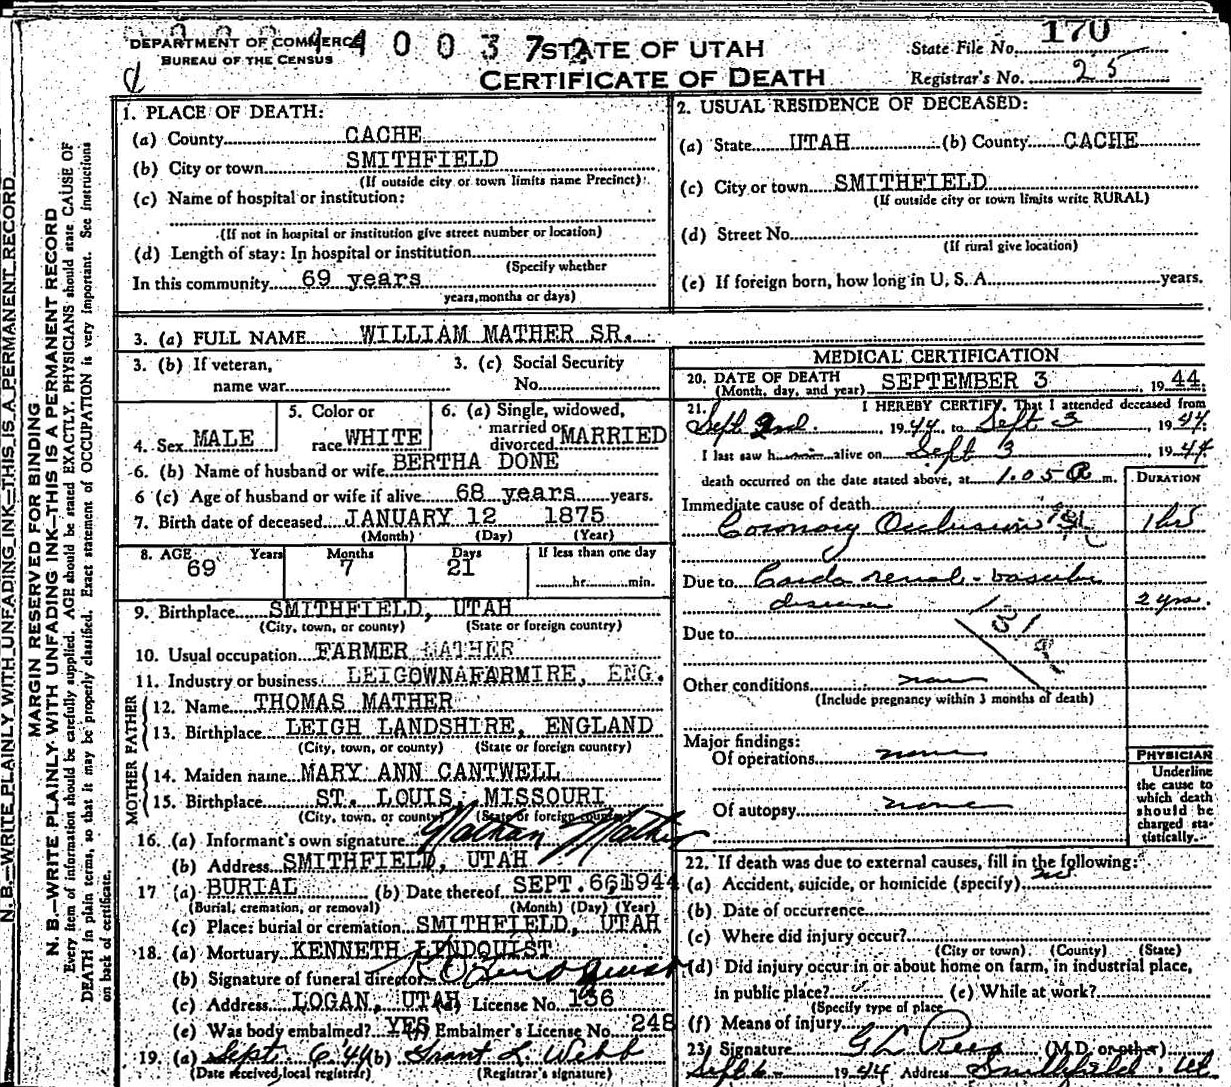 DEPARTMENT OF COMMERCE
BUREAU OF THE CENSUS
STATE OF UTAH
CERTIFICATE OF DEATH
State File No. 170
Registrar's No. 25
N. B.—WRITE PLAINLY WITH UNFADING INK—THIS IS A PERMANENT RECORD
MARGIN RESERVED FOR BINDING
N. B.—WRITE PLAINLY WITH UNFADING INK—THIS IS A PERMANENT RECORD
Every item of information should be carefully supplied. AGE should be stated EXACTLY. PHYSICIANS should state CAUSE OF
DEATH in plain terms, so that it may be properly classified. Exact statement of OCCUPATION is very important. See instructions
on back of certificate.
1. PLACE OF DEATH:
(a) County CACHE
(b) City or town SMITHFIELD
(If outside city or town limits name Precinct)
(c) Name of hospital or institution:
(If not in hospital or institution give street number or location)
(d) Length of stay: In hospital or institution
(Specify whether
In this community 69 years
years, months or days)
2. USUAL RESIDENCE OF DECEASED:
(a) State UTAH (b) County CACHE
(c) City or town SMITHFIELD
(If outside city or town limits write RURAL)
(d) Street No.
(If rural give location)
(e) If foreign born, how long in U. S. A. years.
3. (a) FULL NAME WILLIAM MATHER SR.
3. (b) If veteran, name war
3. (c) Social Security No.
4. Sex MALE
5. Color or race WHITE
6. (a) Single, widowed, married or divorced MARRIED
6. (b) Name of husband or wife BERTHA DONE
6 (c) Age of husband or wife if alive 68 years years.
7. Birth date of deceased JANUARY 12 1875
(Month) (Day) (Year)
8. AGE Years Months Days If less than one day
69 7 21 hr. min.
9. Birthplace SMITHFIELD, UTAH
(City, town, or county) (State or foreign country)
10. Usual occupation FARMER MATHER
11. Industry or business ENG.
FATHER
12. Name THOMAS MATHER
13. Birthplace LEIGH LANDSHIRE, ENGLAND
(City, town, or county) (State or foreign country)
MOTHER
14. Maiden name MARY ANN CANTWELL
15. Birthplace ST. LOUIS, MISSOURI
(City, town, or county) (State or foreign country)
16. (a) Informant's own signature Nathan Mather
(b) Address SMITHFIELD, UTAH
17 (a) BURIAL (b) Date thereof SEPT. 6 1944
(Burial, cremation, or removal) (Month) (Day) (Year)
(c) Place: burial or cremation SMITHFIELD, UTAH
18. (a) Mortuary KENNETH LINDQUIST
(b) Signature of funeral director
(c) Address LOGAN, UTAH License No. 136
(e) Was body embalmed? YES Embalmer's License No. 248
19. (a) Sept. 6 '44 (b) Grant L. Webb
(Date received local registrar) (Registrar's signature)
MEDICAL CERTIFICATION
20. DATE OF DEATH SEPTEMBER 3, 1944
(Month, day, and year)
21. I HEREBY CERTIFY, That I attended deceased from
Sept. 2nd. 1944, to Sept 3, 1944;
I last saw h alive on Sept 3, 1944
death occurred on the date stated above, at 1.05 m.
DURATION
Immediate cause of death
Coronary Occlusion 1 hr
Due to Cardo renal-vascular
disease 2 yrs.
Due to
131a
Other conditions none
(Include pregnancy within 3 months of death)
Major findings:
Of operations none
Of autopsy none
PHYSICIAN
Underline
the cause to
which death
should be
charged sta-
tistically.
22. If death was due to external causes, fill in the following:
(a) Accident, suicide, or homicide (specify) no
(b) Date of occurrence
(c) Where did injury occur?
(City or town) (County) (State)
(d) Did injury occur in or about home on farm, in industrial place,
in public place? (e) While at work?
(Specify type of place
(f) Means of injury
23. Signature G L Rees (M.D. or other)
Sept 6 1944 Address Smithfield, Ut.